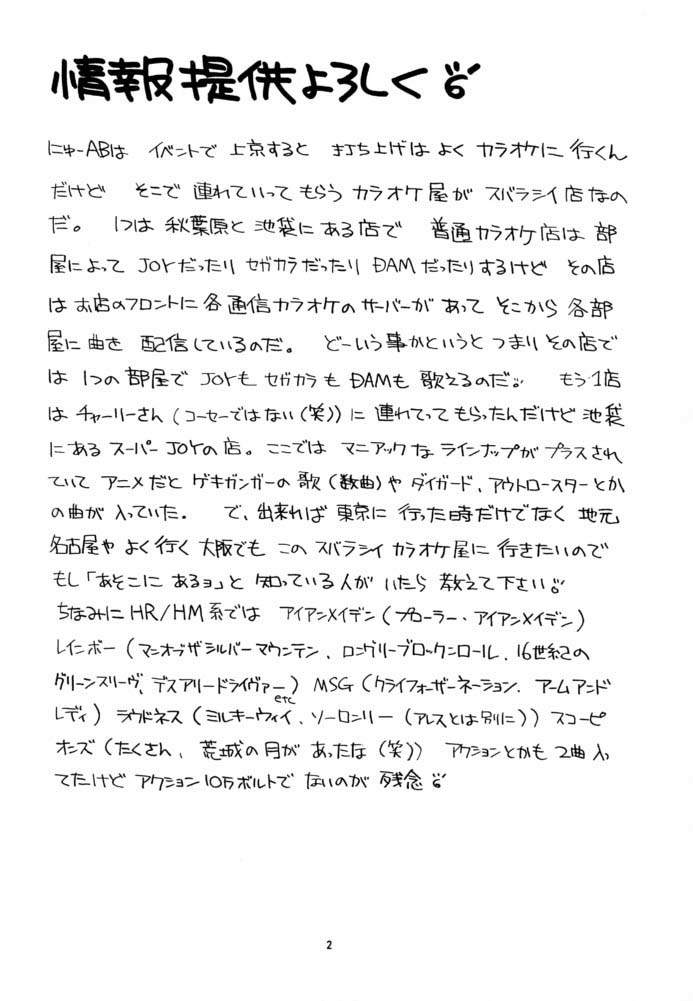 情報提供よろしく
にゅーABは イベントで 上京すると 打ち上げは よく カラオケに 行くん
だけど そこで 連れていって もらう カラオケ屋が スバラシイ店なの
だ。 1つは 秋葉原と 池袋に ある店で 普通カラオケ店は 部
屋によって JOYだったり セガカラだったり DAMだったりするけど その店
は お店のフロントに 各通信カラオケの サーバーが あって そこから 各部
屋に 曲を 配信しているのだ。 どーいう事かというと つまり その店で
は 1つの 部屋で JOYも セガカラも DAMも 歌えるのだ。 もう1店
は チャーリーさん (コーセーではない(笑))に 連れてって もらったんだけど 池袋
にある スーパー JOYの 店。ここでは マニアックな ラインナップが プラスされ
ていて アニメだと ゲキガンガーの 歌 (数曲)や ダイガード、アウトロースターとか
の曲が 入っていた. で、出来れば 東京に 行った時だけでなく 地元
名古屋や よく行く 大阪でも この スバラシイ カラオケ屋に 行きたいので
もし「あそこに あるョ」と 知っている人が いたら 教えて下さい
ちなみに HR/HM系では アイアンメイデン (プローラー、アイアンメイデン)
レインボー (マンオブザシルバーマウンテン、ロングリーブロックンロール、16世紀の
グリーンスリーヴ、デスアリードライヴァー etc) MSG (クライフォーザーネーション、アームアンド
レディ) ラウドネス (ミルキーウェイ、ソーロンリー (アレスとは別に)) スコーピ
オンズ (たくさん、荒城の月が あったな (笑)) アクションとかも 2曲入っ
てたけど アクション10万ボルトで ないのが 残念
2